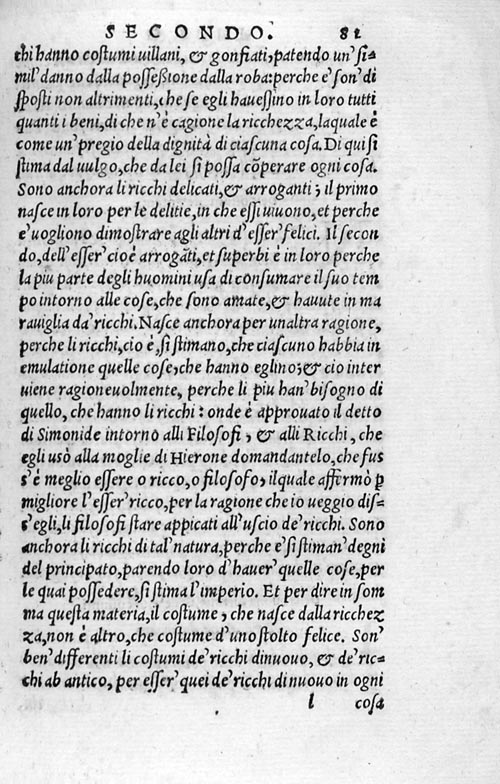 SECONDO. 81
chi hanno costumi uillani, & gonfiati, patendo un' si-
mil' danno dalla possessione dalla roba: perche e' son' di
sposti non altrimenti, che se egli hauessino in loro tutti
quanti i beni, di che n' è cagione la ricchezza, laquale è
come un' pregio della dignità di ciascuna cosa. Di qui si
stima dal uulgo, che da lei si possa cõperare ogni cosa.
Sono anchora li ricchi delicati, & arroganti; il primo
nasce in loro per le delitie, in che essi uiuono, et perche
e' uogliono dimostrare agli altri d' esser' felici. Il secon
do, dell' esser' cioè arrogãti, et superbi è in loro perche
la piu parte degli huomini usa di consumare il suo tem
po intorno alle cose, che sono amate, & hauute in ma
rauiglia da' ricchi. Nasce anchora per unaltra ragione,
perche li ricchi, cio è, si stimano, che ciascuno habbia in
emulatione quelle cose, che hanno eglino; & cio inter
uiene ragioneuolmente, perche li piu han' bisogno di
quello, che hanno li ricchi: onde è approuato il detto
di Simonide intorno alli Filosofi, & alli Ricchi, che
egli usò alla moglie di Hierone domandantelo, che fus
s' è meglio essere o ricco, o filosofo, ilquale affermò ꝑ
migliore l' esser' ricco, per la ragione che io ueggio dis-
s' egli, li filosofi stare appicati all' uscio de' ricchi. Sono
anchora li ricchi di tal' natura, perche e' si stiman' degni
del principato, parendo loro d' hauer' quelle cose, per
le quai possedere, si stima l' imperio. Et per dire in som
ma questa materia, il costume, che nasce dalla ricchez
za, non è altro, che costume d' uno stolto felice. Son'
ben' differenti li costumi de' ricchi dinuouo, & de' ric-
chi ab antico, per esser' quei de' ricchi di nuouo in ogni
l cosa